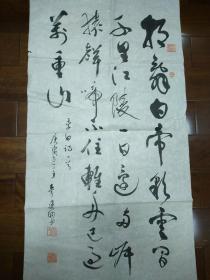 朝辭白帝彩雲間
千里江陵一日還兩岸
猿聲啼不住輕舟已過
萬重山
李白詩